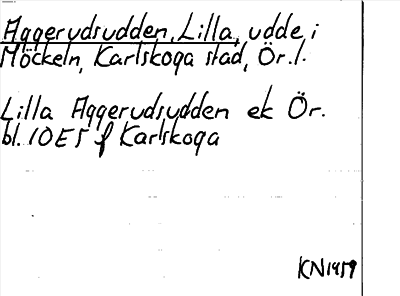 Aggerudsudden, Lilla, udde i
Möckeln, Karlskoga stad, Ör. l.
Lilla Aggerudsudden ek Ör.
bl. 10E5 f Karlskoga
KN1959